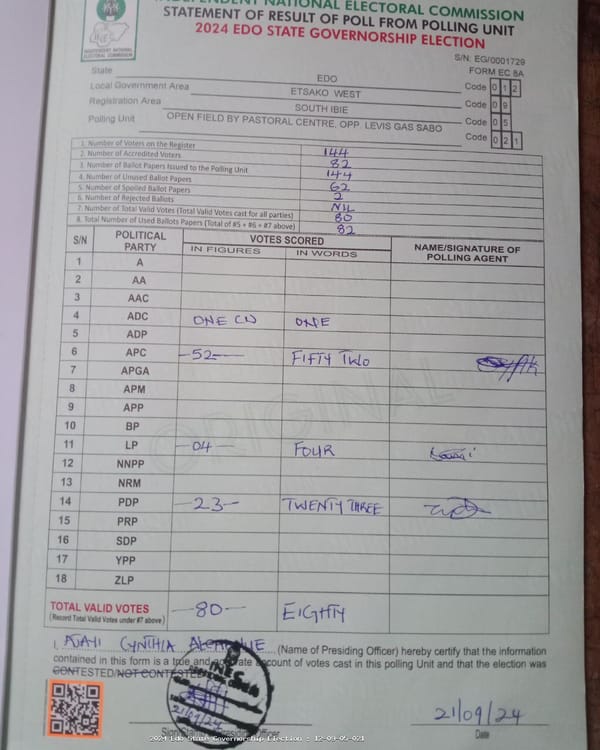 INDEPENDENT NATIONAL ELECTORAL COMMISSION
STATEMENT OF RESULT OF POLL FROM POLLING UNIT
2024 EDO STATE GOVERNORSHIP ELECTION
INEC
INDEPENDENT NATIONAL ELECTORAL COMMISSION
S/N: EG/0001729
FORM EC 8A
State EDO Code 0 1 2
Local Government Area ETSAKO WEST Code 0 9
Registration Area SOUTH IBIE Code 0 5
Polling Unit OPEN FIELD BY PASTORAL CENTRE, OPP. LEVIS GAS SABO Code 0 2 1
1. Number of Voters on the Register 144
2. Number of Accredited Voters 82
3. Number of Ballot Papers Issued to the Polling Unit 144
4. Number of Unused Ballot Papers 62
5. Number of Spoiled Ballot Papers 2
6. Number of Rejected Ballots NIL
7. Number of Total Valid Votes (Total Valid Votes cast for all parties) 80
8. Total Number of Used Ballots Papers (Total of #5 + #6 + #7 above) 82
S/N POLITICAL PARTY VOTES SCORED NAME/SIGNATURE OF POLLING AGENT
IN FIGURES IN WORDS
1 A
2 AA
3 AAC
4 ADC ONE ONE
5 ADP
6 APC -52- FIFTY TWO
7 APGA
8 APM
9 APP
10 BP
11 LP -04- FOUR
12 NNPP
13 NRM
14 PDP -23- TWENTY THREE
15 PRP
16 SDP
17 YPP
18 ZLP
ORIGINAL
TOTAL VALID VOTES -80- EIGHTY
(Record Total Valid Votes under #7 above)
I, AJAYI CYNTHIA (Name of Presiding Officer) hereby certify that the information
contained in this form is a true and accurate account of votes cast in this polling Unit and that the election was
CONTESTED/NOT CONTESTED
INEC
21/09/24
21/09/24
Date
2024 Edo State Governorship Election : 12-09-05-021